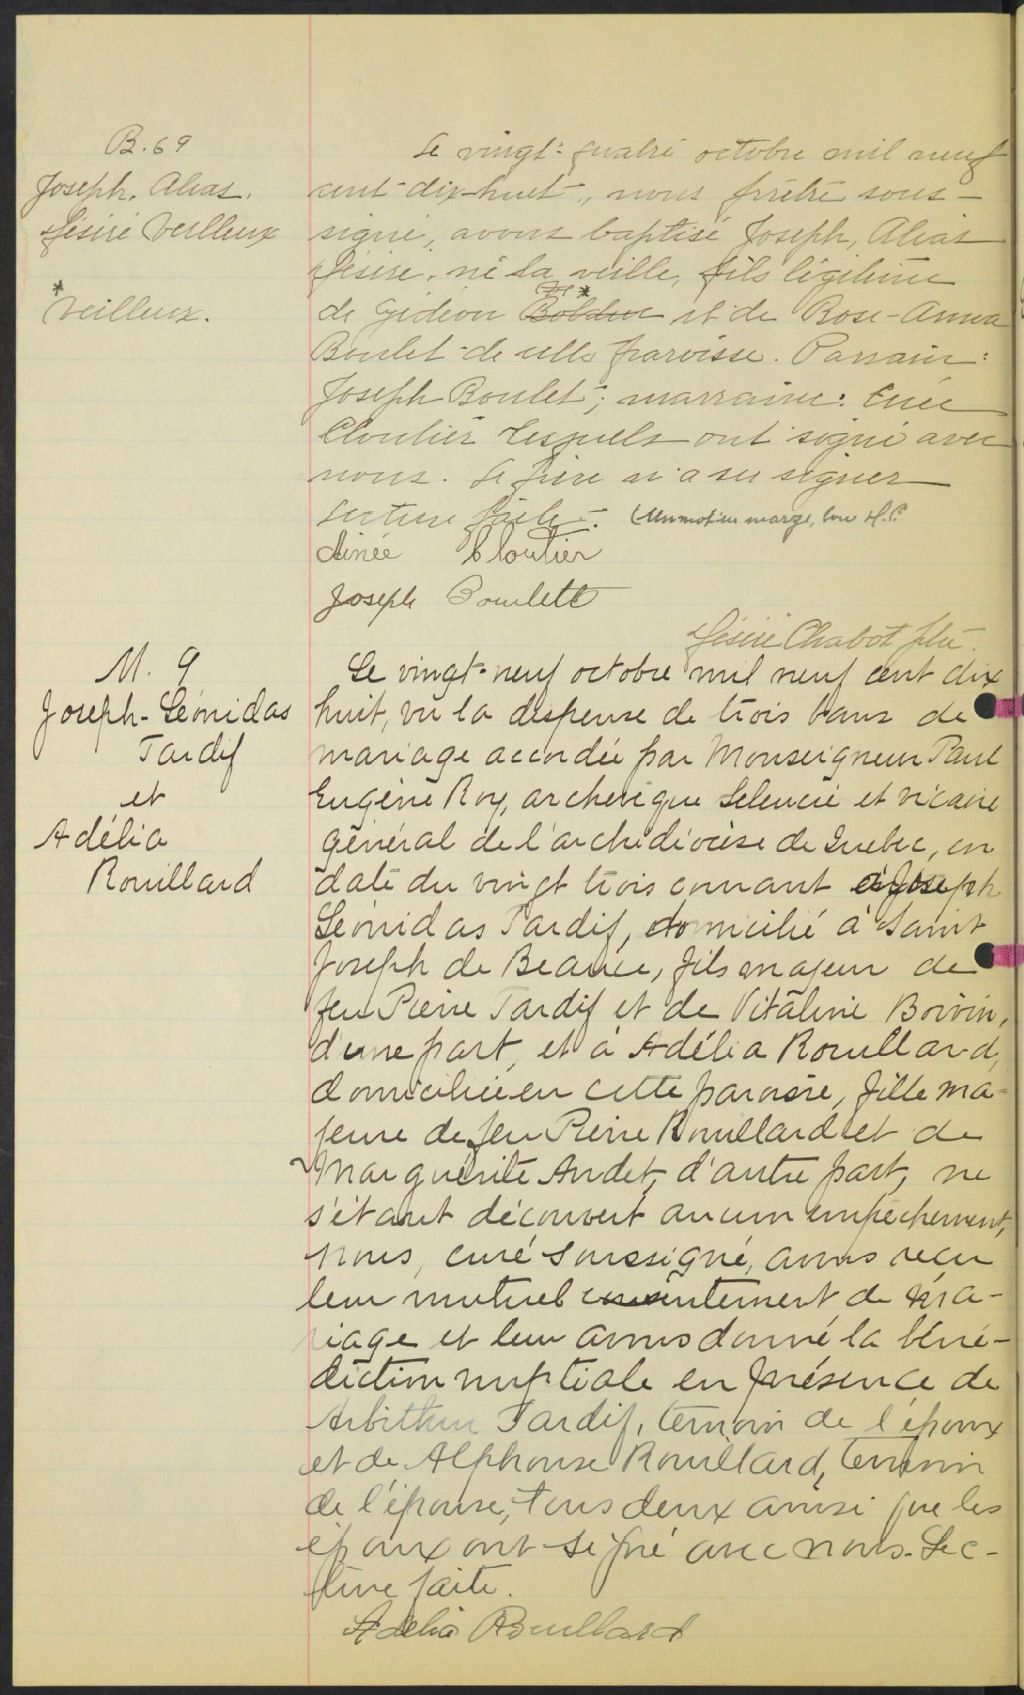 B. 69
Joseph, Alias,
Désiré Veilleux
*
Veilleux.
Le vingt-quatre octobre mil neuf
cent-dix-huit, nous prêtre sous-
signé, avons baptisé Joseph, Alias
Désiré, né la veille, fils légitime
de Gédéon Bolduc * et de Rose-Anna
Boulet de cette paroisse. Parrain:
Joseph Boulet; marraine:
Cloutier lesquels ont signé avec
nous. Le père n'a su signer
Lecture faite. (Un mot en marge, bon
Aimée Cloutier
Joseph Boulett
Désiré Chabot ptre.
M. 9
Joseph-Léonidas
Tardif
et
Adélia
Rouillard
Le vingt-neuf octobre mil neuf cent dix
huit, vu la dispense de trois bans de
mariage accordée par Monseigneur Paul
Eugène Roy, archevêque Seleucie et vicaire
général de l'archidiocèse de Québec, en
date du vingt trois courant à Joseph
Léonidas Tardif, domicilié à Saint
Joseph de Beauce, fils majeur de
feu Pierre Tardif et de Vitaline Boivin,
d'une part, et à Adélia Rouillard,
domiciliée en cette paroisse, fille ma-
jeure de feu Pierre Rouillard et de
Marguerite Audet, d'autre part, ne
s'étant découvert aucun empêchement,
Nous, curé soussigné, avons reçu
leur mutuel consentement de ma-
riage et leur avons donné la béné-
diction nuptiale en présence de
Tardif, témoin de l'époux
et de Alphonse Rouillard, témoin
de l'épouse, tous deux ainsi que les
époux ont signé avec nous. Lec-
ture faite.
Adélia Rouillard